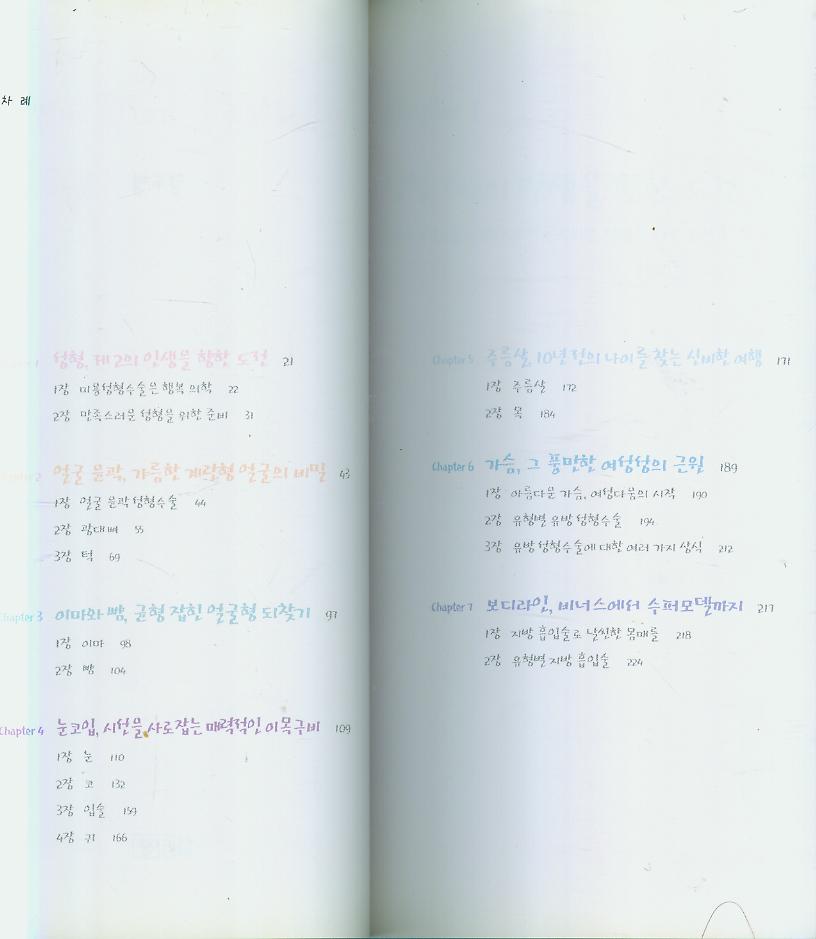 차 례
성형, 제2의 인생을 향한 도전 21
1장 미용성형수술은 행복 의학 22
2장 만족스러운 성형을 위한 준비 31
얼굴 윤곽, 갸름한 계란형 얼굴의 비밀 43
1장 얼굴 윤곽 성형수술 44
2장 광대뼈 55
3장 턱 69
Chapter 3 이마와 뺨, 균형 잡힌 얼굴형 되찾기 97
1장 이마 98
2장 뺨 104
Chapter 4 눈코입, 시선을 사로잡는 매력적인 이목구비 109
1장 눈 110
2장 코 132
3장 입술 159
4장 귀 166
Chapter 5 주름살, 10년 전의 나이를 찾는 신비한 여행 171
1장 주름살 172
2장 목 184
Chapter 6 가슴, 그 풍만한 여성성의 근원 189
1장 아름다운 가슴, 여성다움의 시작 190
2장 유형별 유방 성형수술 194
3장 유방 성형수술에 대한 여러 가지 상식 212
Chapter 7 보디라인, 비너스에서 수퍼모델까지 217
1장 지방 흡입술로 날씬한 몸매를 218
2장 유형별 지방 흡입술 224